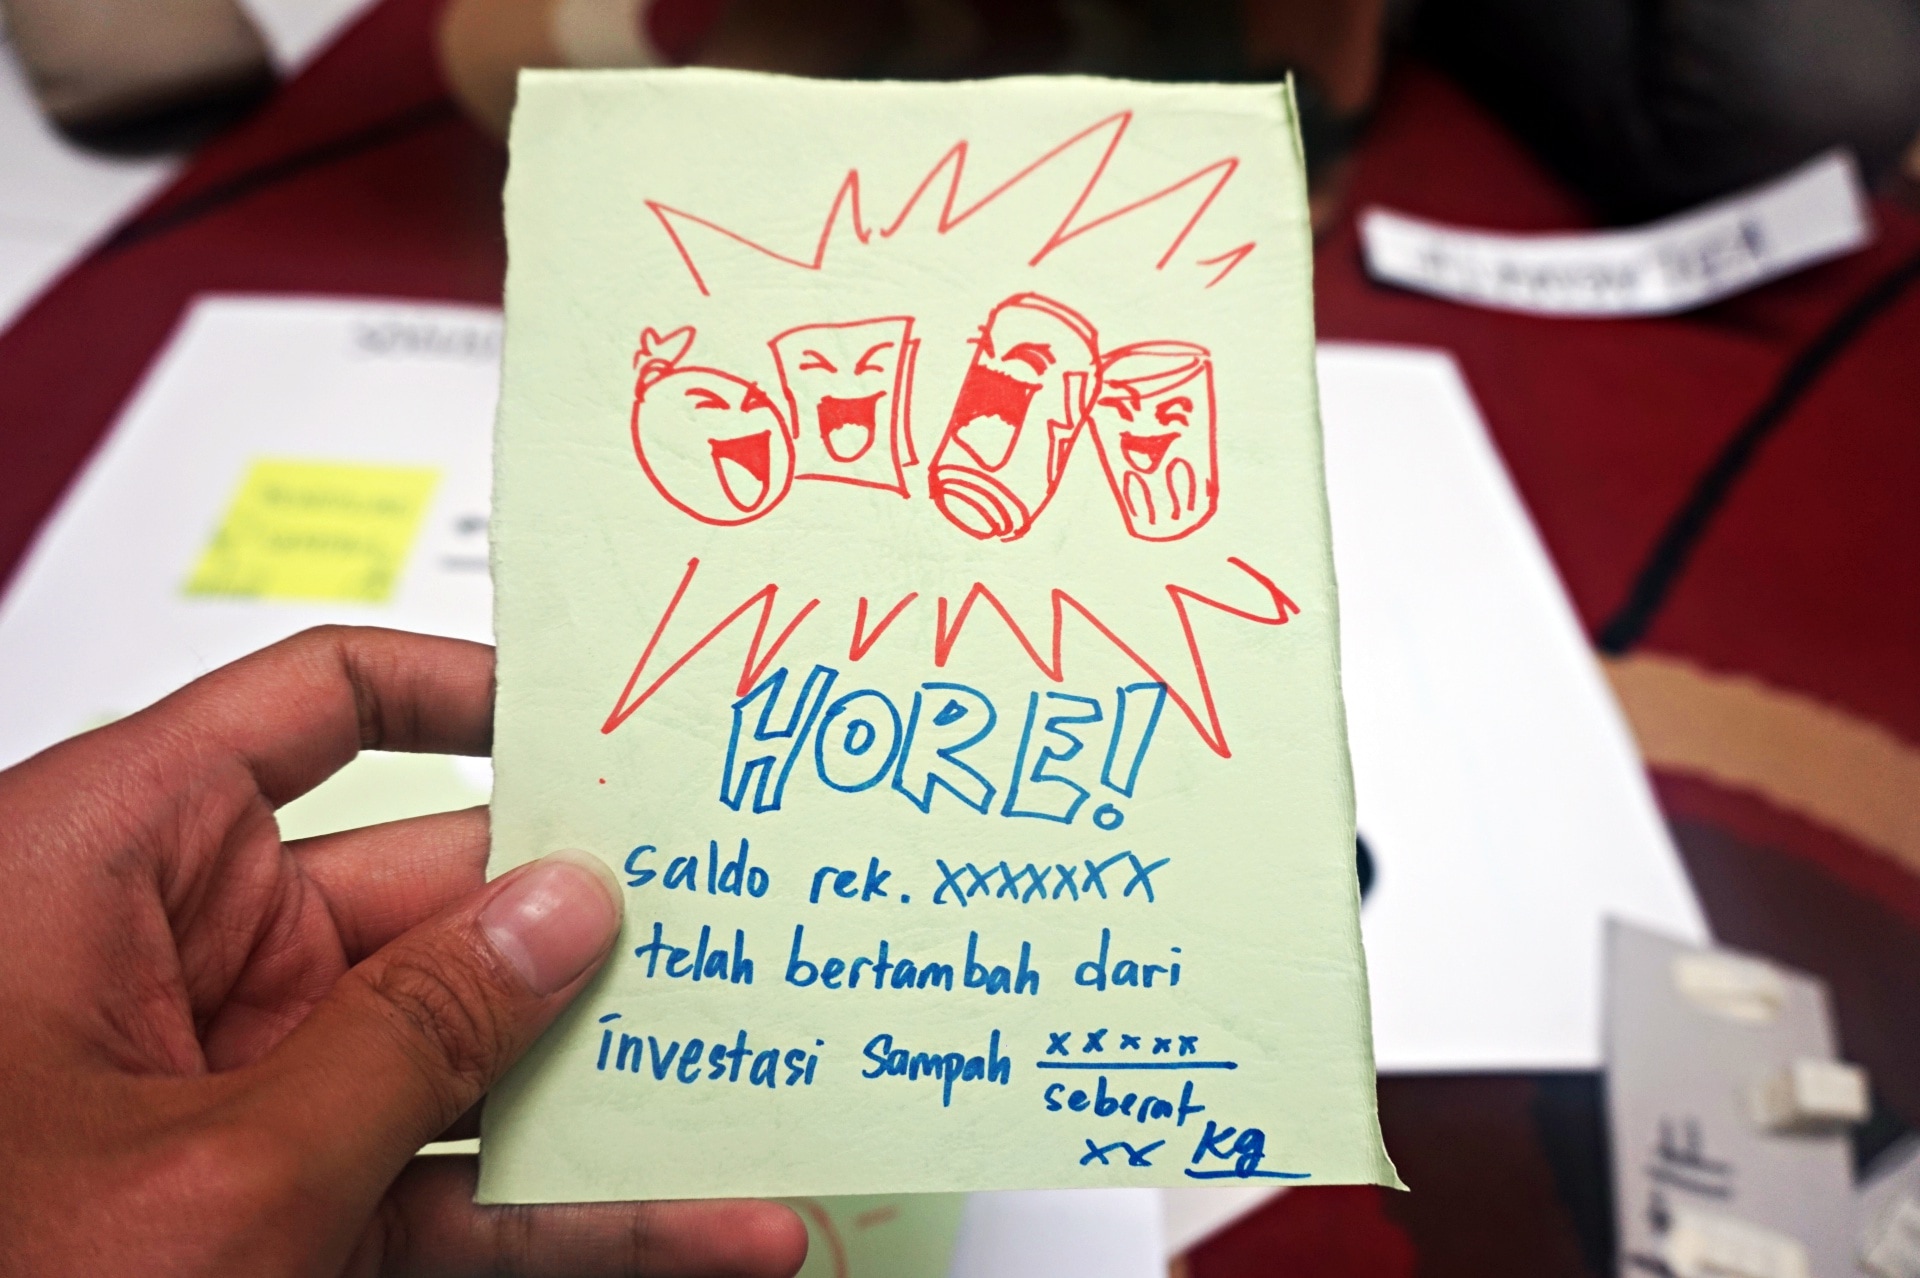 HORE!
saldo rek. xxxxxxx
telah bertambah dari
investasi sampah xxxxx
seberat
xx Kg